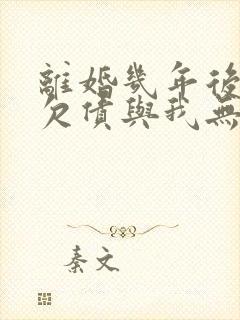 離婚幾年後
欠債與我無
秦文